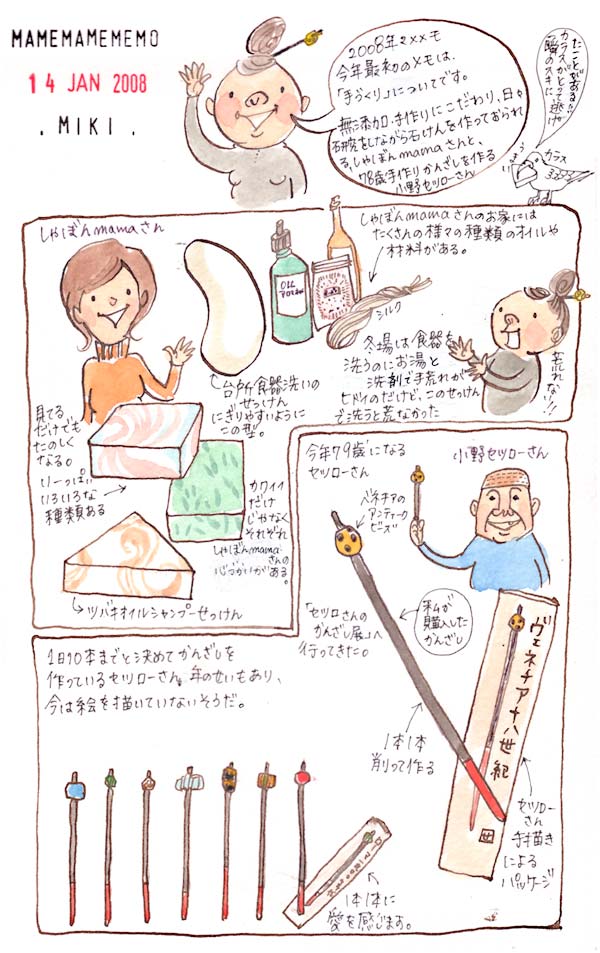 MAMEMAMEMEMO
14 JAN 2008
. MIKI .
2008年マメメモ
今年最初のメモは、
「手づくり」についてです。
無添加、手作りにこだわり、日々
研究をしながら石けんを作っておられ
る、しゃぼんmamaさんと、
78歳手作りかんざしを作る
小野セツローさん
たことがある!!
カラスがとって逃げ
一瞬のスキに
カラス
しゃぼんmamaさん
OIL
しゃぼんmamaさんのお家には
たくさんの様々の種類のオイルや
材料がある。
シルク
台所食器洗いの
せっけん
にぎりやすいように
この型。
冬場は食器を
洗うのにお湯と
洗剤で手荒れが
ヒドイのだけど、このせっけん
で洗うと荒なかった
荒れない!!
見てる
だけでも
たのしく
なる。
いーっぱい
いろいろな
種類ある
カワイイ
だけ
じゃなく
それぞれ
しゃぼんmama
さんの
心づかいがある。
ツバキオイルシャンプーせっけん
今年79歳になる
セツローさん
小野セツローさん
ベネチアの
アンティーク
ビーズ
「セツローさんの
かんざし展」へ
行ってきた。
私が
購入した
かんざし
1本1本
削って作る
ヴェネチア十八世紀
セツロー
さん
手描き
による
パッケージ
1日10本までと決めてかんざしを
作っているセツローさん。年のせいもあり、
今は絵を描いていないそうだ。
1本1本に
愛を感じます。